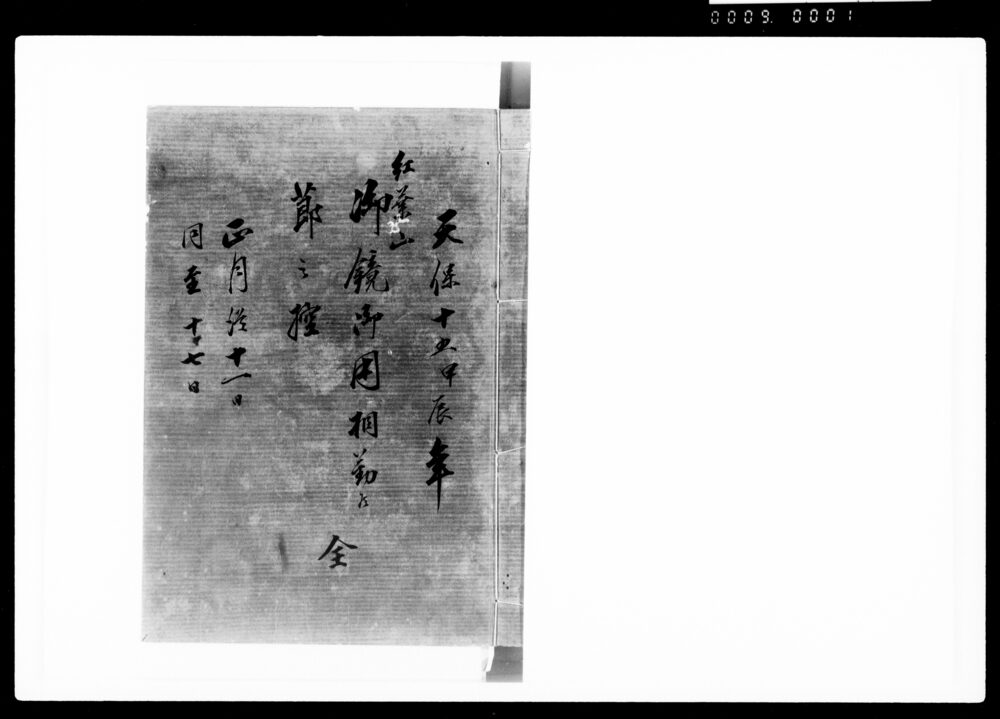 0009. 0001
天保十五甲辰年
紅葉山
御鏡御用相勤候
節之控
全
正月従十一日
同至十七日